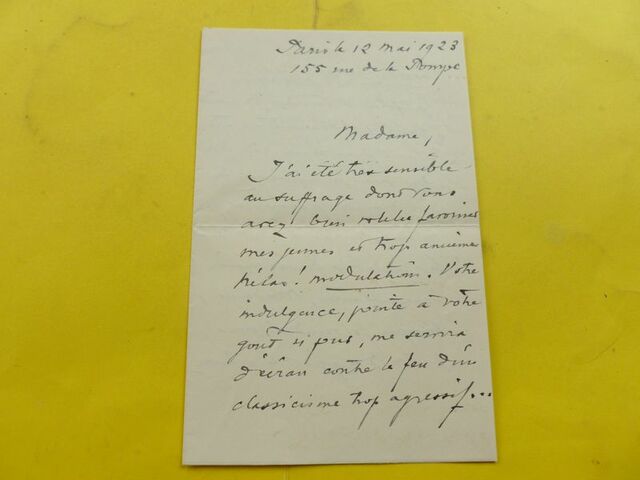 Paris le 12 mai 1923
155 rue de la Pompe
Madame,
J'ai été très sensible
au suffrage dont vous
avez bien voulu favoriser
mes jeunes et trop anciennes
hélas! modulations. Votre
indulgence, jointe à votre
goût si pur, me servira
d'écran contre le feu d'un
classicisme trop agressif...